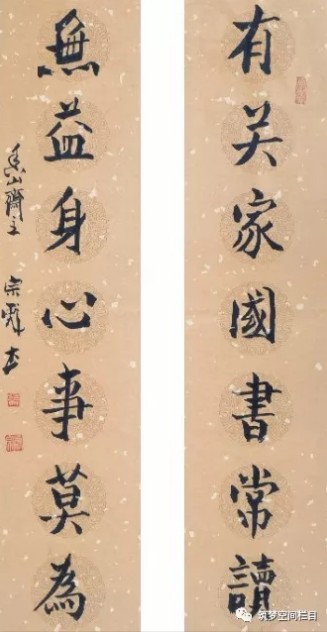 有关家國書常讀
無益身心事莫為
山齋主
筑梦空间栏目